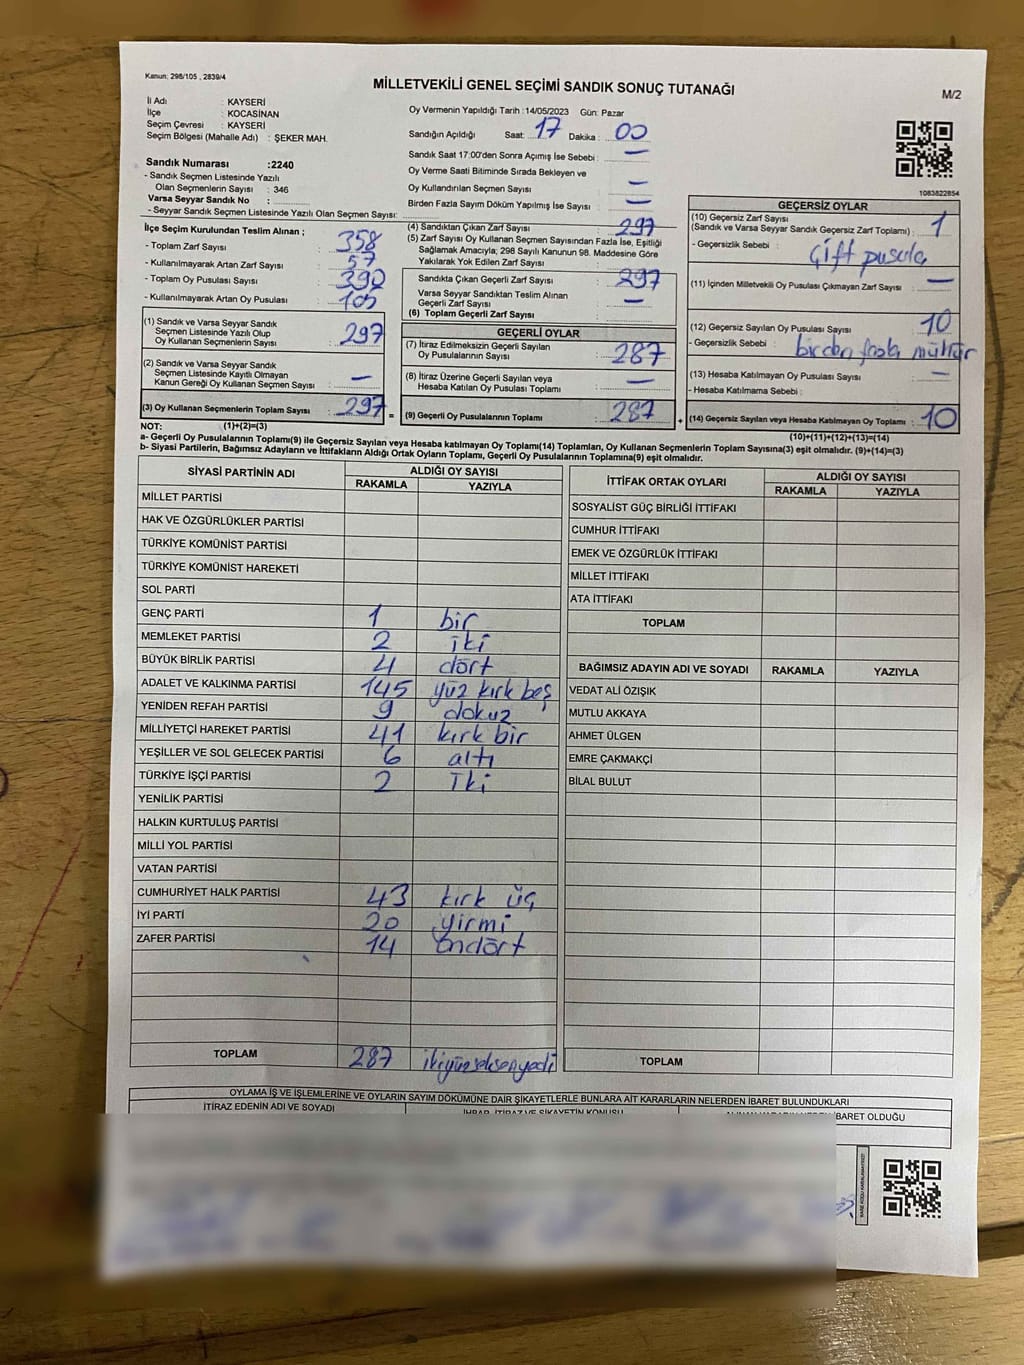 Kanun: 298/105 , 2839/4
MİLLETVEKİLİ GENEL SEÇİMİ SANDIK SONUÇ TUTANAĞI
M/2
İl Adı : KAYSERİ
İlçe : KOCASİNAN
Seçim Çevresi : KAYSERİ
Seçim Bölgesi (Mahalle Adı) : ŞEKER MAH.
Sandık Numarası :2240
- Sandık Seçmen Listesinde Yazılı
Olan Seçmenlerin Sayısı : 346
Varsa Seyyar Sandık No :
- Seyyar Sandık Seçmen Listesinde Yazılı Olan Seçmen Sayısı:
Oy Vermenin Yapıldığı Tarih :14/05/2023 Gün: Pazar
Sandığın Açıldığı Saat: 17 Dakika : 00
Sandık Saat 17:00'den Sonra Açımış İse Sebebi : —
Oy Verme Saati Bitiminde Sırada Bekleyen ve
Oy Kullandırılan Seçmen Sayısı : —
Birden Fazla Sayım Döküm Yapılmış İse Sayısı : —
1083822854
İlçe Seçim Kurulundan Teslim Alınan ;
- Toplam Zarf Sayısı : 358
- Kullanılmayarak Artan Zarf Sayısı : 57
- Toplam Oy Pusulası Sayısı : 390
- Kullanılmayarak Artan Oy Pusulası : 105
(1) Sandık ve Varsa Seyyar Sandık
Seçmen Listesinde Yazılı Olup
Oy Kullanan Seçmenlerin Sayısı : 297
(2) Sandık ve Varsa Seyyar Sandık
Seçmen Listesinde Kayıtlı Olmayan
Kanun Gereği Oy Kullanan Seçmen Sayısı : —
(3) Oy Kullanan Seçmenlerin Toplam Sayısı : 297 =
(4) Sandıktan Çıkan Zarf Sayısı : 297
(5) Zarf Sayısı Oy Kullanan Seçmen Sayısından Fazla İse, Eşitliği
Sağlamak Amacıyla; 298 Sayılı Kanunun 98. Maddesine Göre
Yakılarak Yok Edilen Zarf Sayısı :
Sandıkta Çıkan Geçerli Zarf Sayısı : 297
Varsa Seyyar Sandıktan Teslim Alınan
Geçerli Zarf Sayısı : —
(6) Toplam Geçerli Zarf Sayısı :
GEÇERLİ OYLAR
(7) İtiraz Edilmeksizin Geçerli Sayılan
Oy Pusulalarının Sayısı : 287
(8) İtiraz Üzerine Geçerli Sayılan veya
Hesaba Katılan Oy Pusulası Toplamı : —
(9) Geçerli Oy Pusulalarının Toplamı : 287 +
GEÇERSİZ OYLAR
(10) Geçersiz Zarf Sayısı
(Sandık ve Varsa Seyyar Sandık Geçersiz Zarf Toplamı) : 1
- Geçersizlik Sebebi : Çift pusula
(11) İçinden Milletvekili Oy Pusulası Çıkmayan Zarf Sayısı : —
(12) Geçersiz Sayılan Oy Pusulası Sayısı : 10
- Geçersizlik Sebebi : birden fazla mühür
(13) Hesaba Katılmayan Oy Pusulası Sayısı : —
- Hesaba Katılmama Sebebi :
(14) Geçersiz Sayılan veya Hesaba Katılmayan Oy Toplamı : 10
NOT: (1)+(2)=(3)
(10)+(11)+(12)+(13)=(14)
a- Geçerli Oy Pusulalarının Toplamı(9) ile Geçersiz Sayılan veya Hesaba katılmayan Oy Toplamı(14) Toplamları, Oy Kullanan Seçmenlerin Toplam Sayısına(3) eşit olmalıdır. (9)+(14)=(3)
b- Siyasi Partilerin, Bağımsız Adayların ve İttifakların Aldığı Ortak Oyların Toplamı, Geçerli Oy Pusulalarının Toplamına(9) eşit olmalıdır.
SİYASİ PARTİNİN ADI ALDIĞI OY SAYISI
RAKAMLA YAZIYLA
MİLLET PARTİSİ
HAK VE ÖZGÜRLÜKLER PARTİSİ
TÜRKİYE KOMÜNİST PARTİSİ
TÜRKİYE KOMÜNİST HAREKETİ
SOL PARTİ
GENÇ PARTİ 1 bir
MEMLEKET PARTİSİ 2 iki
BÜYÜK BİRLİK PARTİSİ 4 dört
ADALET VE KALKINMA PARTİSİ 145 yüz kırk beş
YENİDEN REFAH PARTİSİ 9 dokuz
MİLLİYETÇİ HAREKET PARTİSİ 41 kırk bir
YEŞİLLER VE SOL GELECEK PARTİSİ 6 altı
TÜRKİYE İŞÇİ PARTİSİ 2 İki
YENİLİK PARTİSİ
HALKIN KURTULUŞ PARTİSİ
MİLLİ YOL PARTİSİ
VATAN PARTİSİ
CUMHURİYET HALK PARTİSİ 43 kırk üç
İYİ PARTİ 20 yirmi
ZAFER PARTİSİ 14 ondört
TOPLAM 287 ikiyüzseksenyedi
İTTİFAK ORTAK OYLARI ALDIĞI OY SAYISI
RAKAMLA YAZIYLA
SOSYALİST GÜÇ BİRLİĞİ İTTİFAKI
CUMHUR İTTİFAKI
EMEK VE ÖZGÜRLÜK İTTİFAKI
MİLLET İTTİFAKI
ATA İTTİFAKI
TOPLAM
BAĞIMSIZ ADAYIN ADI VE SOYADI RAKAMLA YAZIYLA
VEDAT ALİ ÖZIŞIK
MUTLU AKKAYA
AHMET ÜLGEN
EMRE ÇAKMAKÇİ
BİLAL BULUT
TOPLAM
OYLAMA İŞ VE İŞLEMLERİNE VE OYLARIN SAYIM DÖKÜMÜNE DAİR ŞİKAYETLERLE BUNLARA AİT KARARLARIN NELERDEN İBARET BULUNDUKLARI
İTİRAZ EDENİN ADI VE SOYADI İHBAR, İTİRAZ VE ŞİKAYETİN KONUSU İBARET OLDUĞU